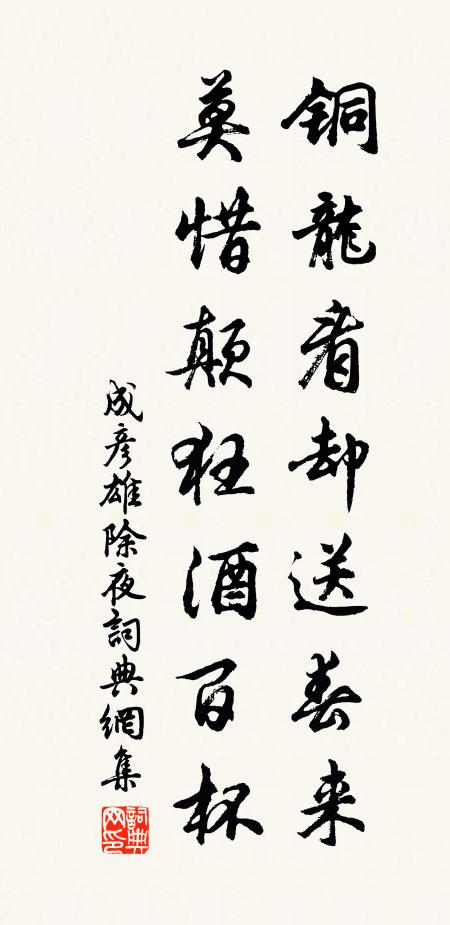 銅龍看却送春来
莫惜顛狂酒百杯
成彥雄除夜詞典網集
詞典网印